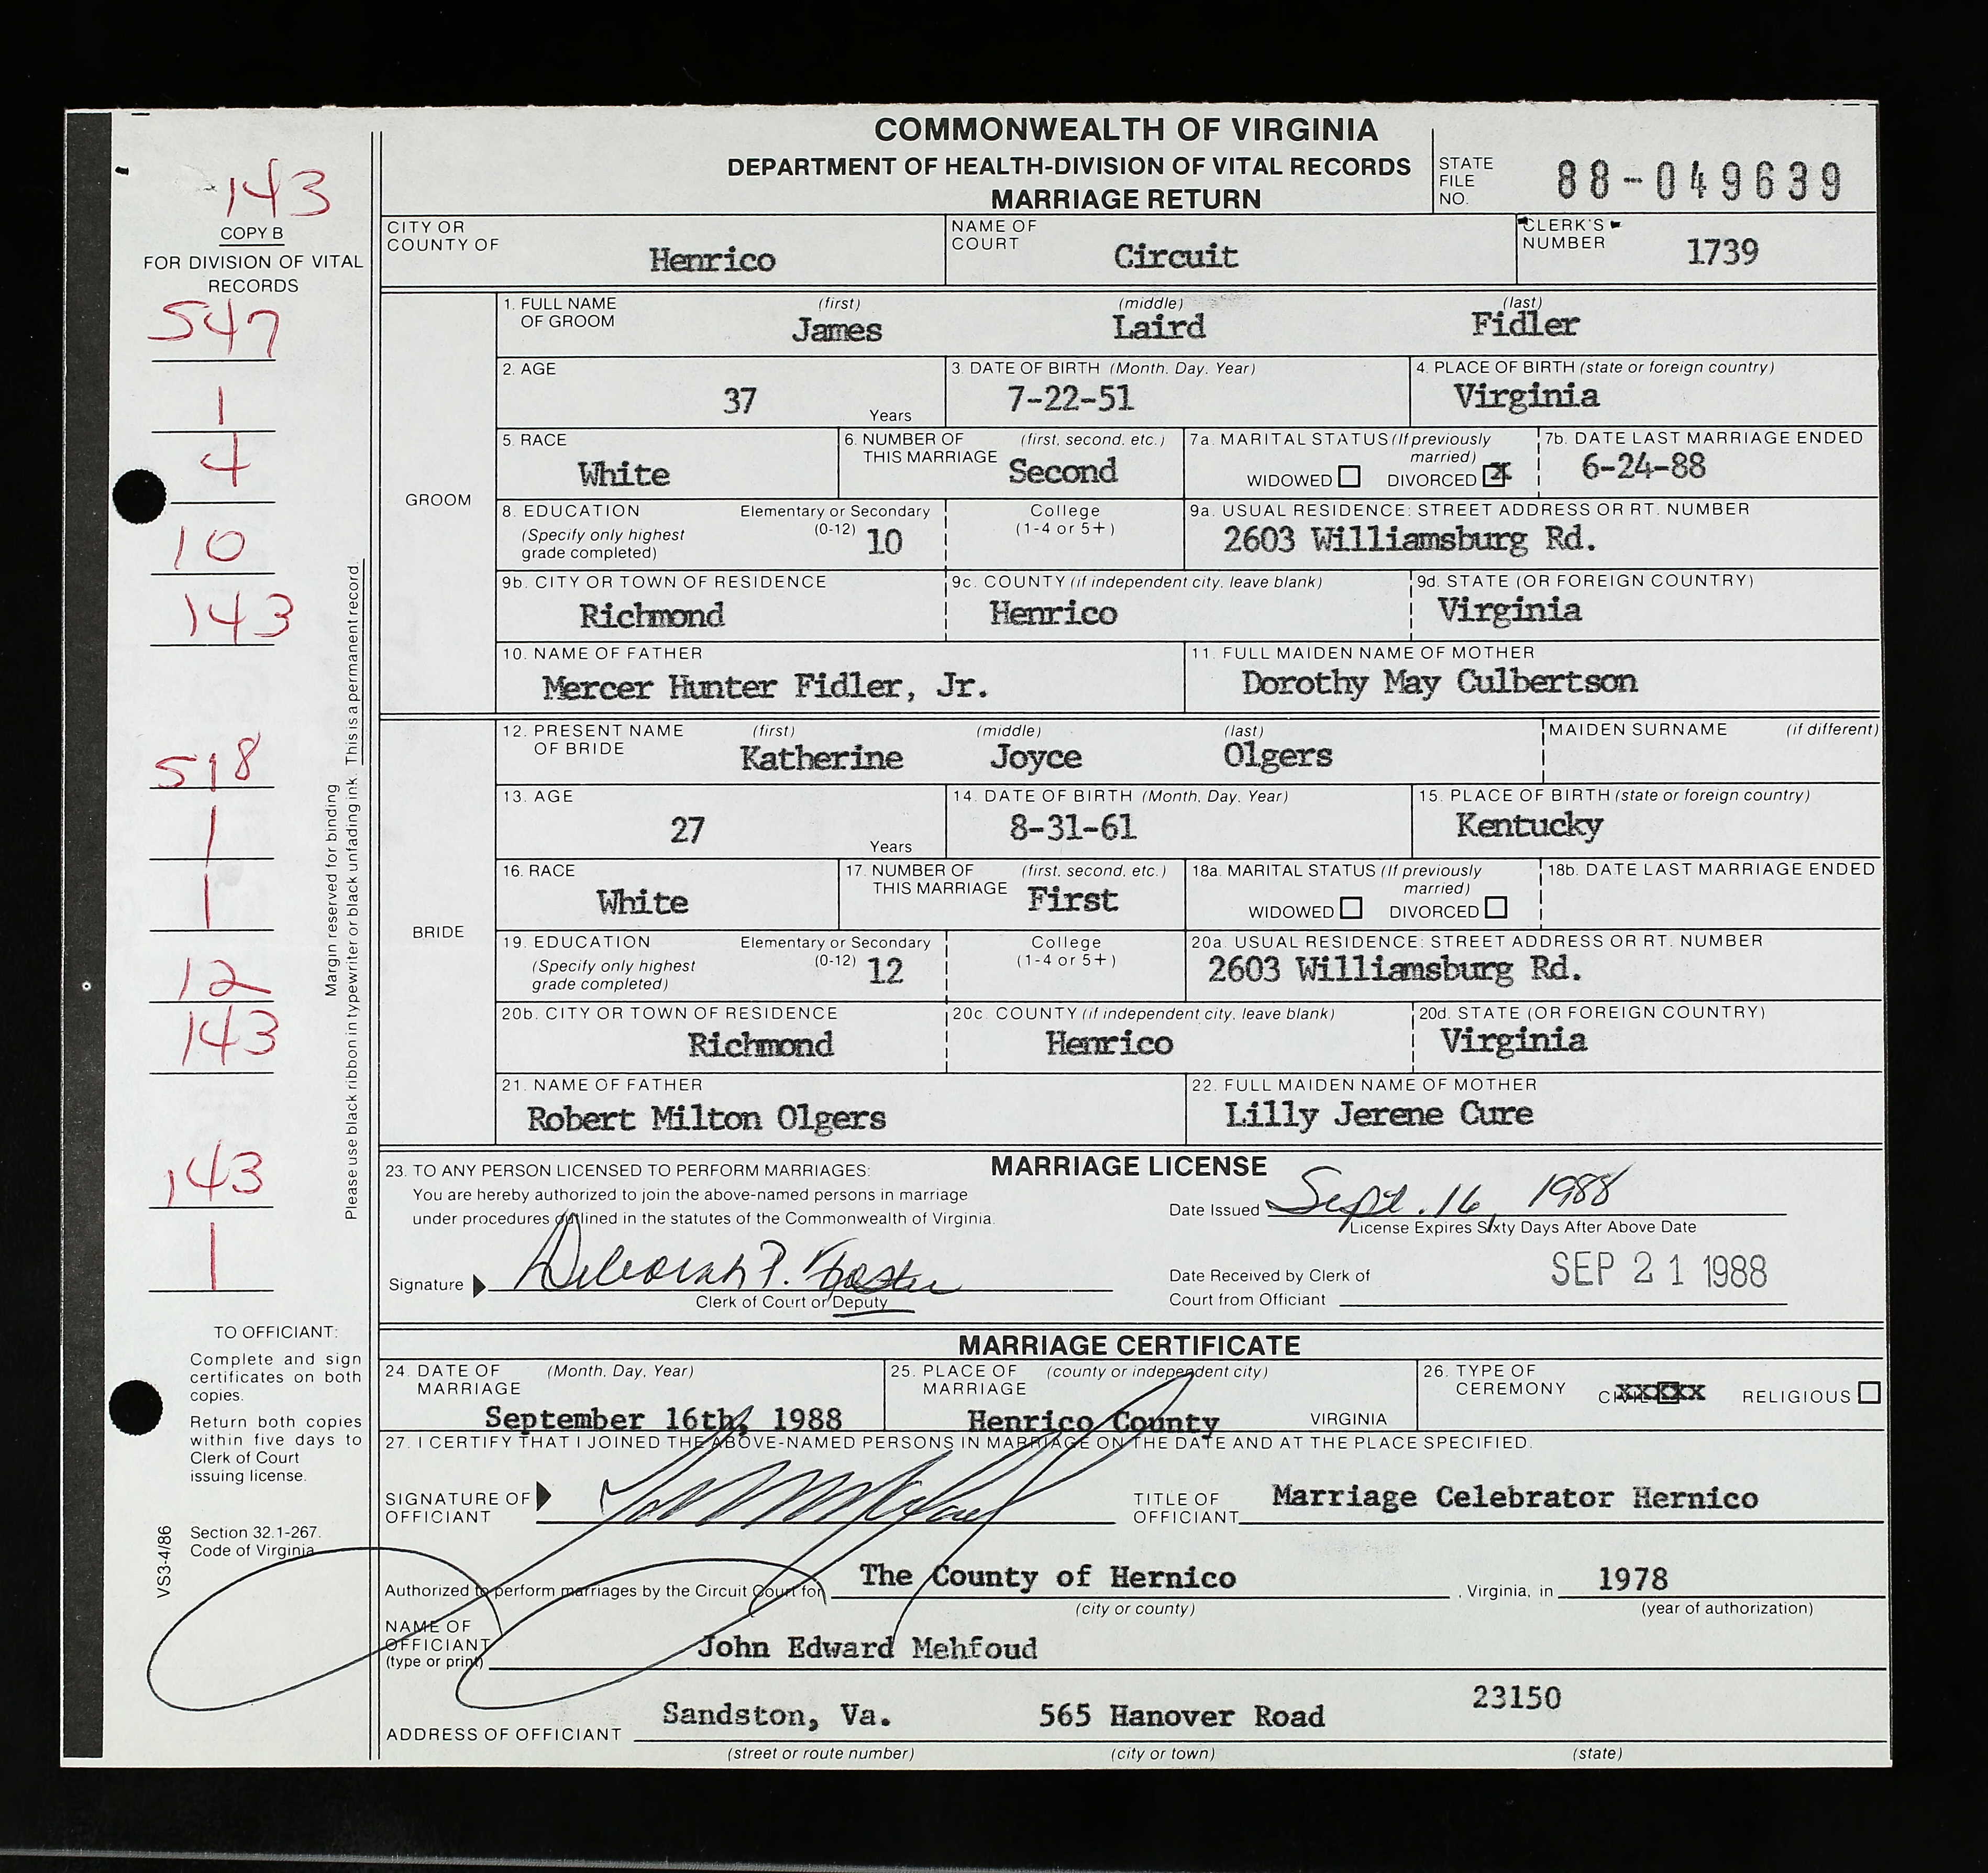 COMMONWEALTH OF VIRGINIA
DEPARTMENT OF HEALTH-DIVISION OF VITAL RECORDS
MARRIAGE RETURN
STATE FILE NO. 88-049639
143
COPY B
FOR DIVISION OF VITAL RECORDS
547
1
4
10
143
518
1
1
12
143
143
1
Margin reserved for binding
Please use black ribbon in typewriter or black unfading ink. This is a permanent record.
TO OFFICIANT:
Complete and sign
certificates on both
copies.
Return both copies
within five days to
Clerk of Court
issuing license.
Section 32.1-267.
Code of Virginia
VS3-4/86
CITY OR COUNTY OF Henrico
NAME OF COURT Circuit
CLERK'S NUMBER 1739
GROOM
1. FULL NAME OF GROOM (first) James (middle) Laird (last) Fidler
2. AGE 37 Years
3. DATE OF BIRTH (Month, Day, Year) 7-22-51
4. PLACE OF BIRTH (state or foreign country) Virginia
5. RACE White
6. NUMBER OF THIS MARRIAGE (first, second, etc.) Second
7a. MARITAL STATUS (If previously married) WIDOWED DIVORCED X
7b. DATE LAST MARRIAGE ENDED 6-24-88
8. EDUCATION (Specify only highest grade completed) Elementary or Secondary (0-12) 10 College (1-4 or 5+)
9a. USUAL RESIDENCE: STREET ADDRESS OR RT. NUMBER 2603 Williamsburg Rd.
9b. CITY OR TOWN OF RESIDENCE Richmond
9c. COUNTY (if independent city, leave blank) Henrico
9d. STATE (OR FOREIGN COUNTRY) Virginia
10. NAME OF FATHER Mercer Hunter Fidler, Jr.
11. FULL MAIDEN NAME OF MOTHER Dorothy May Culbertson
BRIDE
12. PRESENT NAME OF BRIDE (first) Katherine (middle) Joyce (last) Olgers MAIDEN SURNAME (if different)
13. AGE 27 Years
14. DATE OF BIRTH (Month, Day, Year) 8-31-61
15. PLACE OF BIRTH (state or foreign country) Kentucky
16. RACE White
17. NUMBER OF THIS MARRIAGE (first, second, etc.) First
18a. MARITAL STATUS (If previously married) WIDOWED DIVORCED
18b. DATE LAST MARRIAGE ENDED
19. EDUCATION (Specify only highest grade completed) Elementary or Secondary (0-12) 12 College (1-4 or 5+)
20a. USUAL RESIDENCE: STREET ADDRESS OR RT. NUMBER 2603 Williamsburg Rd.
20b. CITY OR TOWN OF RESIDENCE Richmond
20c. COUNTY (if independent city, leave blank) Henrico
20d. STATE (OR FOREIGN COUNTRY) Virginia
21. NAME OF FATHER Robert Milton Olgers
22. FULL MAIDEN NAME OF MOTHER Lilly Jerene Cure
MARRIAGE LICENSE
23. TO ANY PERSON LICENSED TO PERFORM MARRIAGES:
You are hereby authorized to join the above-named persons in marriage
under procedures outlined in the statutes of the Commonwealth of Virginia.
Date Issued Sept. 16, 1988
License Expires Sixty Days After Above Date
Signature Deborah P. Foster
Clerk of Court or Deputy
Date Received by Clerk of Court from Officiant SEP 21 1988
MARRIAGE CERTIFICATE
24. DATE OF MARRIAGE (Month, Day, Year) September 16th, 1988
25. PLACE OF MARRIAGE (county or independent city) Henrico County VIRGINIA
26. TYPE OF CEREMONY CIVIL xxxxxx RELIGIOUS
27. I CERTIFY THAT I JOINED THE ABOVE-NAMED PERSONS IN MARRIAGE ON THE DATE AND AT THE PLACE SPECIFIED.
SIGNATURE OF OFFICIANT
TITLE OF OFFICIANT Marriage Celebrator Hernico
Authorized to perform marriages by the Circuit Court for The County of Hernico, Virginia, in 1978
(city or county) (year of authorization)
NAME OF OFFICIANT (type or print) John Edward Mehfoud
ADDRESS OF OFFICIANT Sandston, Va. 565 Hanover Road 23150
(street or route number) (city or town) (state)